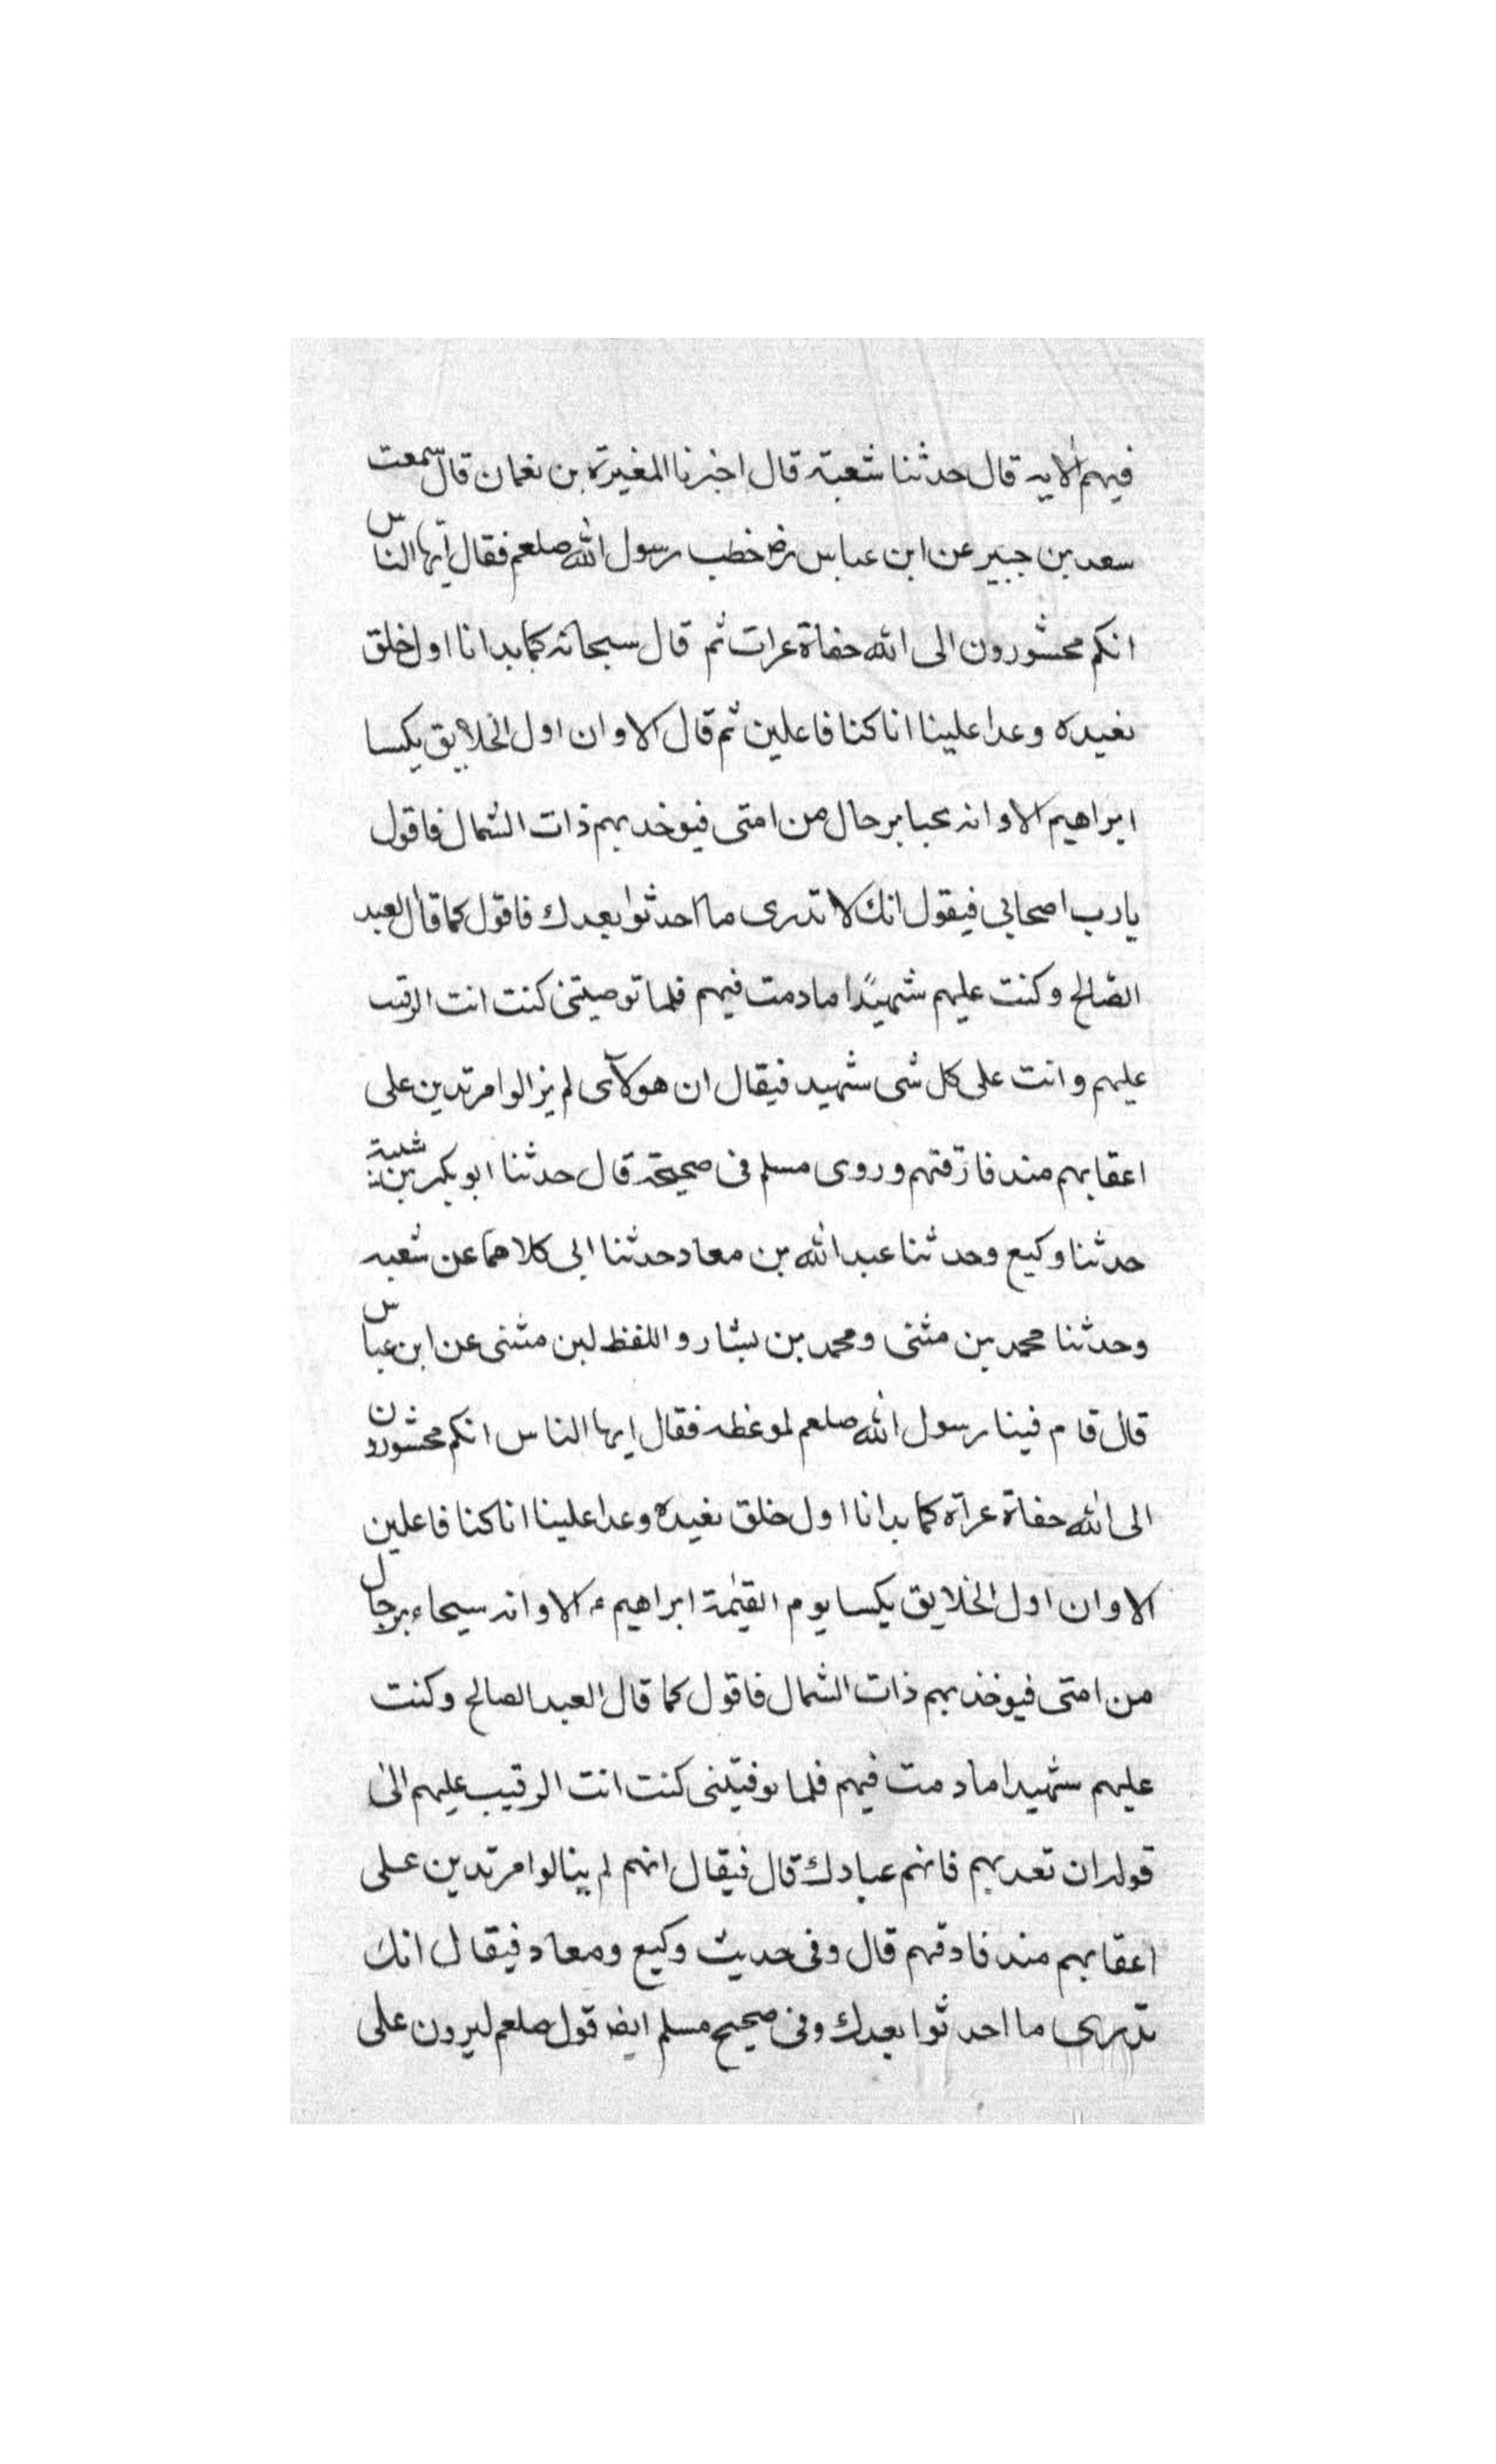 فيهم الايه قال حدثنا شعبة قال اخبرنا المغيرة بن نعمان قال سمعت
سعد بن جبير عن ابن عباس رض خطب رسول الله صلعم فقال ايها الناس
انكم محشورون الى الله حفاة عرات ثم قال سبحانه كما بدانا اول خلق
نعيده وعدا علينا انا كنا فاعلين ثم قال الا وان اول الخلايق يكسا
ابراهيم الا وانه يجبا برجال من امتى فيوخد بهم ذات الشمال فاقول
يارب اصحابي فيقول انك لا تدرى ما احدثوا بعدك فاقول كما قال العبد
الصّالح وكنت عليهم شهيدًا ما دمت فيهم فلما توصيتنى كنت انت الرقيب
عليهم وانت على كل شى شهيد فيقال ان هولآى لم يزالوا مرتدين على
اعقابهم مند فارقتهم وروى مسلم فى صحيحه قال حدثنا ابو بكر بن شيبة
حدثنا وكيع وحدثنا عبد الله بن معاد حدثنا ابى كلاهما عن شعبه
وحدثنا محمد بن مثنى ومحمد بن بشار واللفظ لبن مثنى عن ابن عباس
قال قام فينا رسول الله صلعم لموعظه فقال ايها الناس انكم محشورون
الى الله حفاة عراة كما بدانا اول خلق نعيده وعدا علينا انا كنا فاعلين
الا وان اول الخلايق يكسا يوم القيٰمة ابراهيم ع الا وانه سيجاء برجال
من امتى فيوخذ بهم ذات الشمال فاقول كما قال العبد الصالح وكنت
عليهم شهيدا ما دمت فيهم فلما توفيتنى كنت انت الرقيب عليهم الى
قوله ان تعدبهم فانهم عبادك قال فيقال انهم لم ينالوا مرتدين على
اعقابهم مند فارقهم قال وفى حديث وكيع ومعاد فيقال انك
تدرى ما احدثوا بعدك وفى صحيح مسلم ايض قول صلعم ليرون على